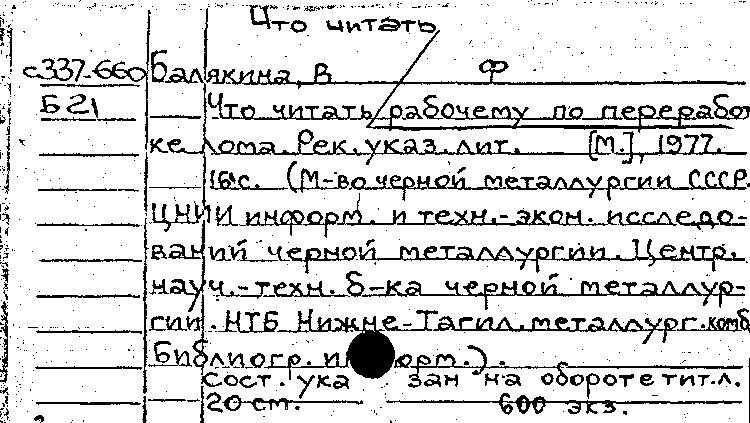 Что читать
с337-660 Балякина, В Ф
Б 21 Что читать рабочему по переработ
ке лома. Рек. указ. лит. [М.], 1977.
16 с. (М-во черной металлургии СССР.
ЦНИИ информ. и техн.-экон. исследо-
ваний черной металлургии. Центр.
науч.-техн. б-ка черной металлур-
гии. НТБ Нижне-Тагил. металлург. комб
Библиогр. информ.).
Сост. указан на обороте тит. л.
20 см. 600 экз.